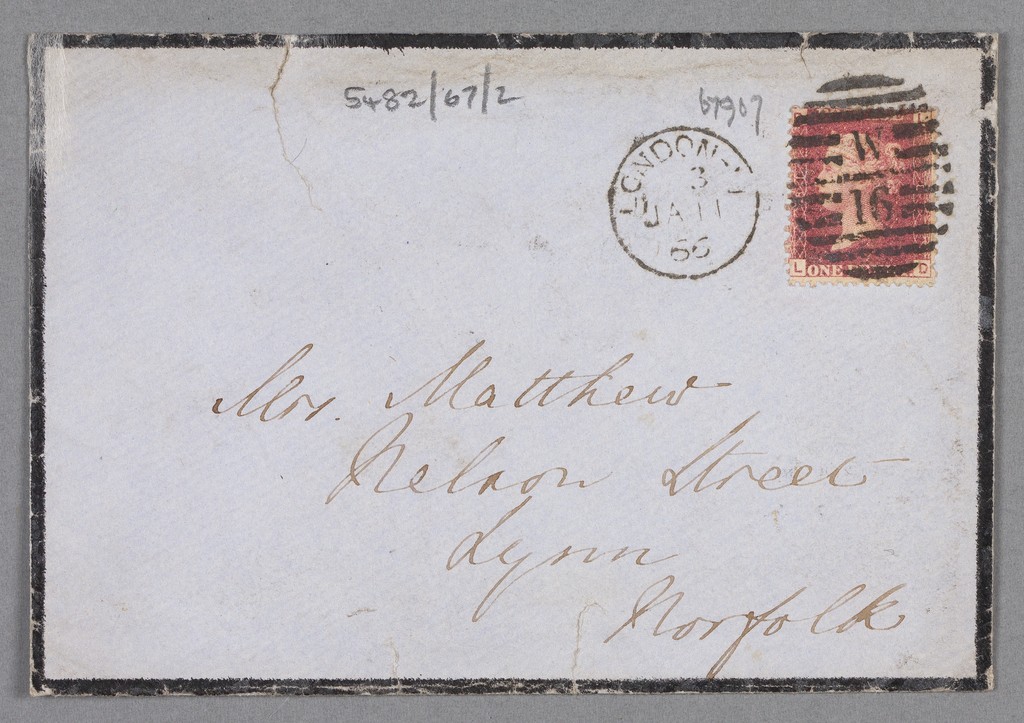 5482/67/2
67907
LONDON-W
3
JA 11
66
W
16
L ONE D
Mrs. Matthew
Nelson Street
Lynn
Norfolk